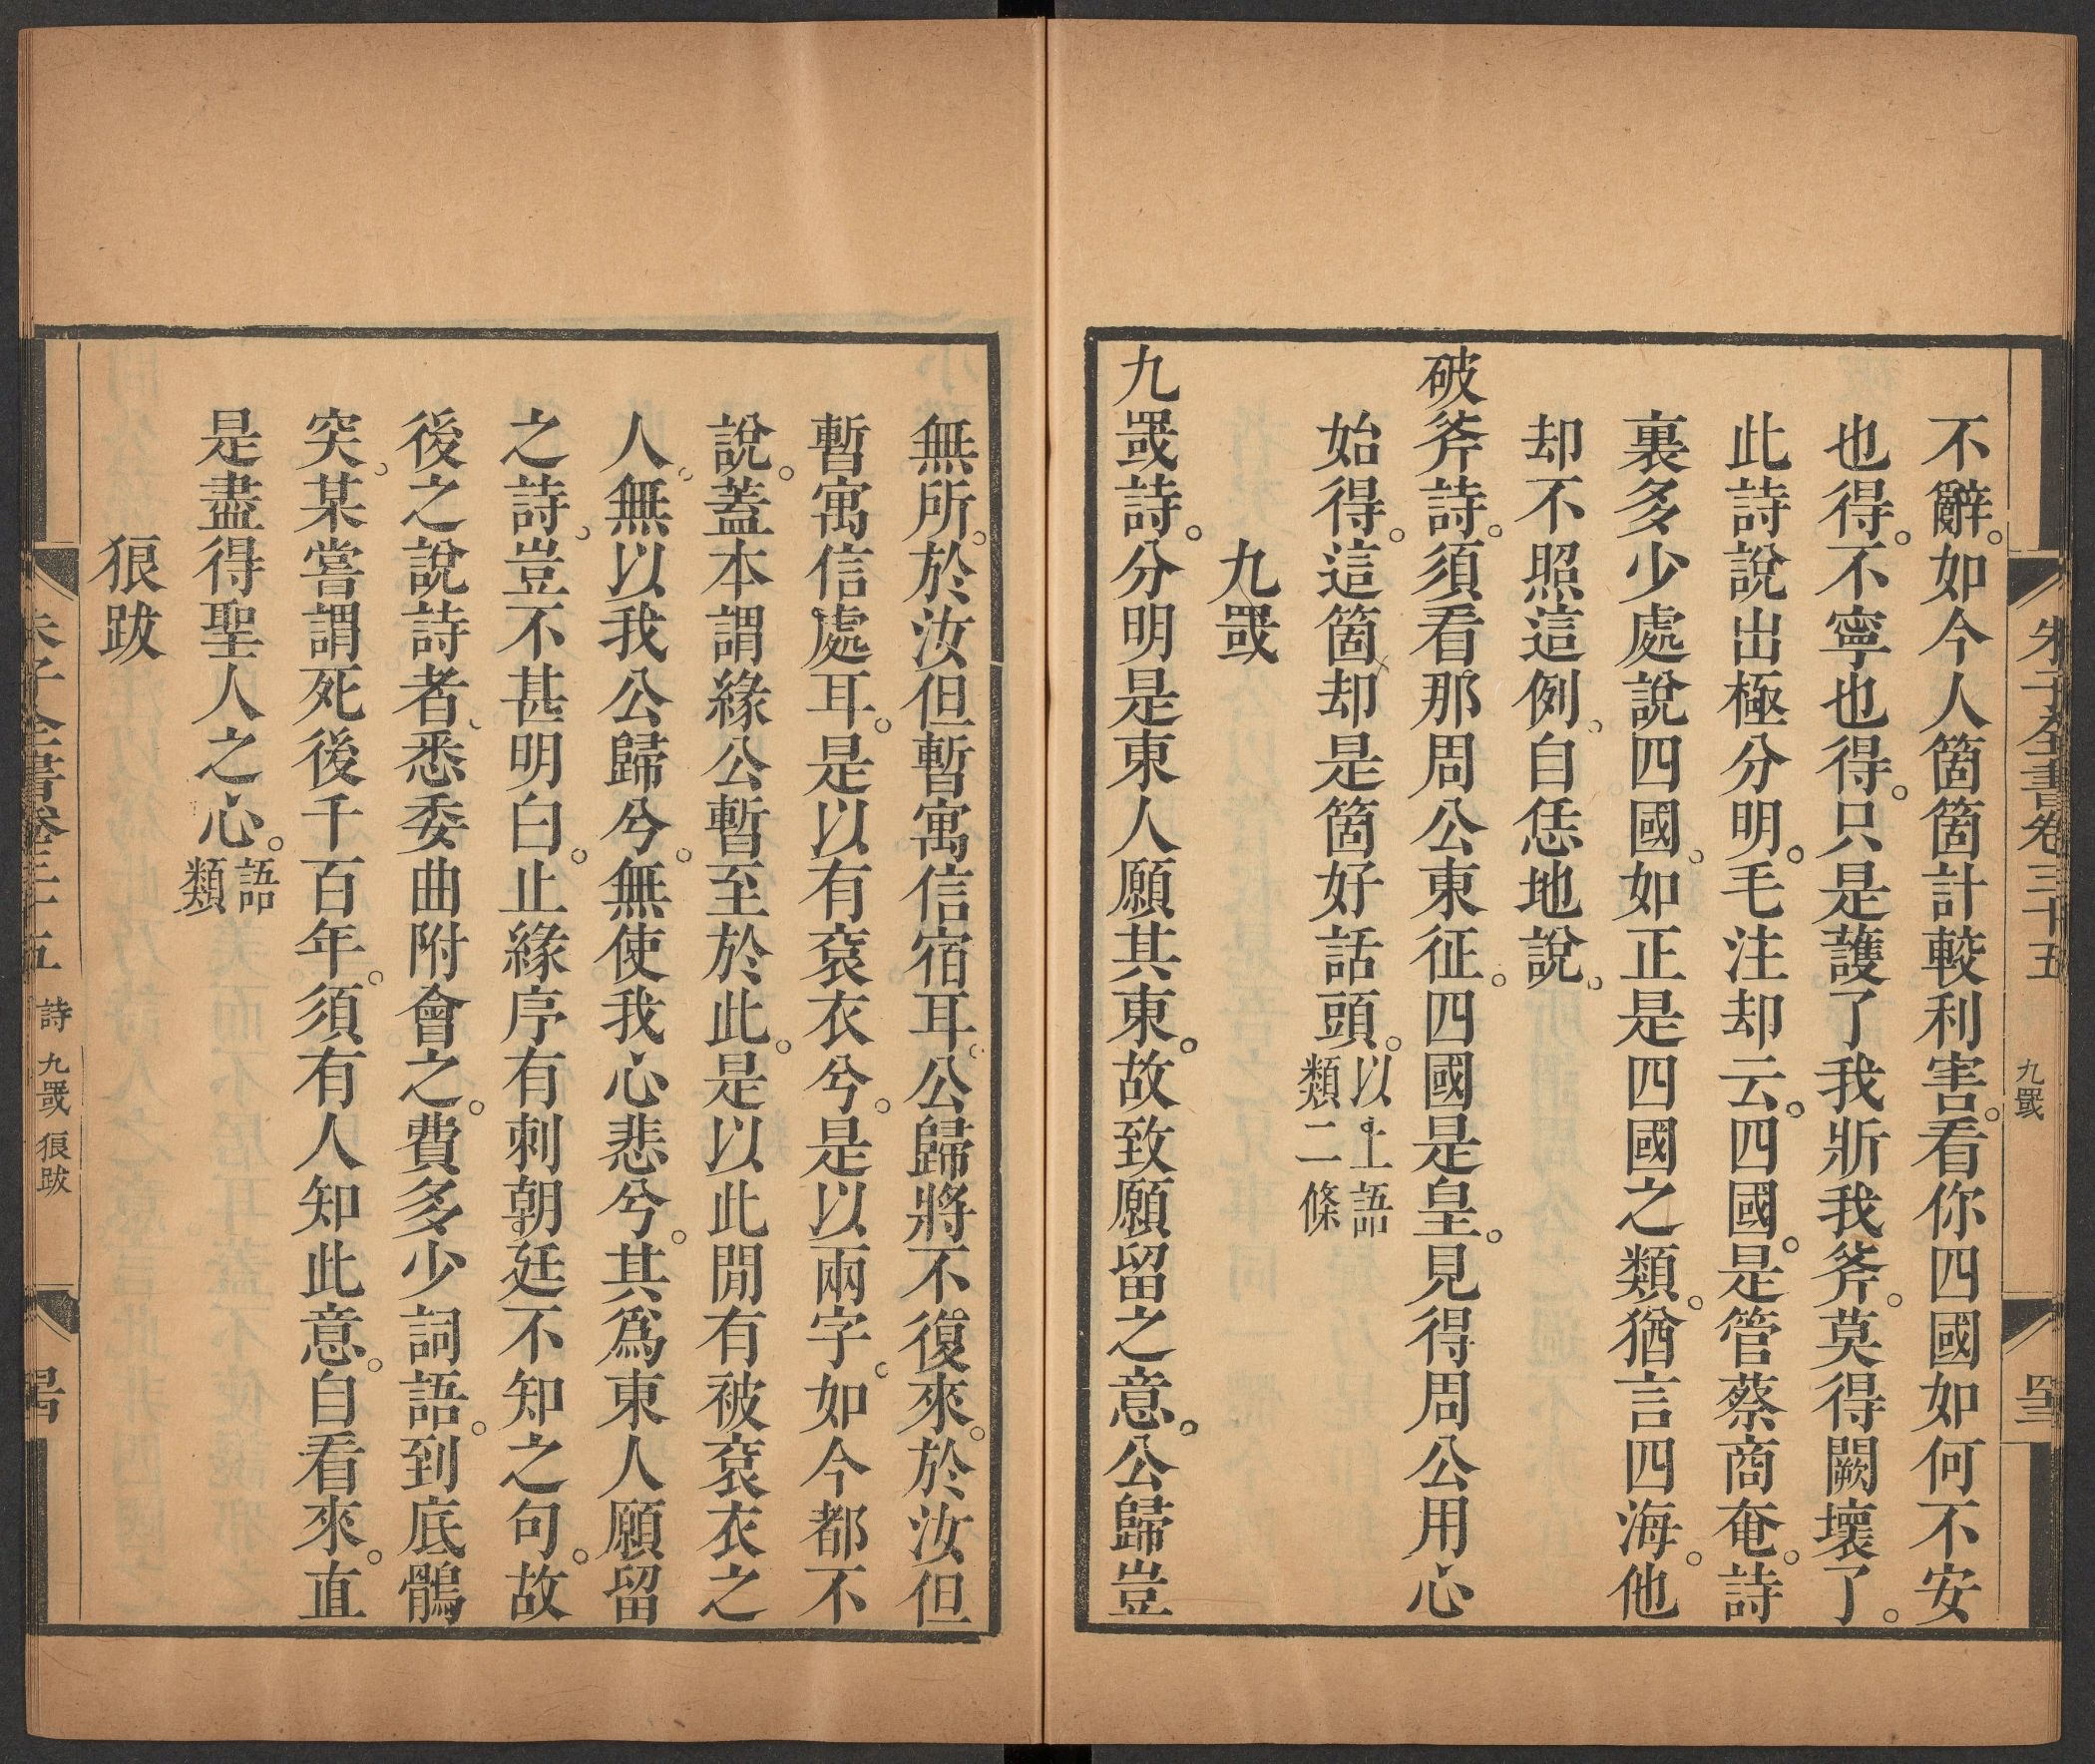 朱子全書卷三十五 九罭 四十三
不辭。如今人箇箇計較利害。看你四國如何不安
也得。不寧也得。只是護了我斨我斧。莫得闕壞了。
此詩說出極分明。毛注却云。四國。是管蔡商奄。詩
裏多少處說四國。如正是四國之類。猶言四海。他
却不照這例。自恁地說。
破斧詩。須看那周公東征。四國是皇。見得周公用心
始得。這箇却是箇好話頭。以上語類二條
九罭
九罭詩。分明是東人願其東。故致願留之意。公歸豈
無所。於汝但暫寓信宿耳。公歸將不復來。於汝但
暫寓信處耳。是以有袞衣兮。是以兩字。如今都不
說。蓋本謂緣公暫至於此。是以此閒有被袞衣之
人。無以我公歸兮。無使我心悲兮。其爲東人願留
之詩。豈不甚明白。止緣序有刺朝廷不知之句。故
後之說詩者。悉委曲附會之。費多少詞語。到底鶻
突。某嘗謂死後千百年。須有人知此意。自看來。直
是盡得聖人之心。語類
狼跋
朱子全書卷三十五 詩 九罭 狼跋